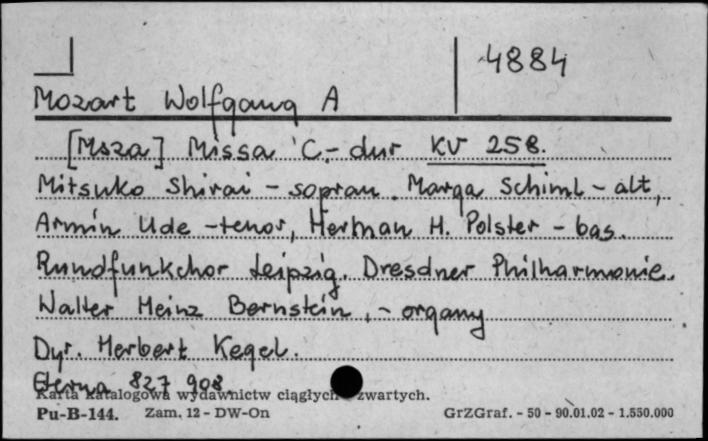 4884
Mozart Wolfgang A
[Msza] Missa C-dur KV 258.
Mitsuko Shirai - sopran. Marga Schiml - alt,
Armin Ude - tenor, Herman H. Polster - bas.
Rundfunkchor Leipzig. Dresdner Philharmonie.
Walter Heinz Bernstein, - organy
Dyr. Herbert Kegel.
Eterna 827 908
Karta katalogowa wydawnictw ciągłych zwartych.
Pu-B-144. Zam. 12 - DW-On GrZGraf. - 50 - 90.01.02 - 1.550.000